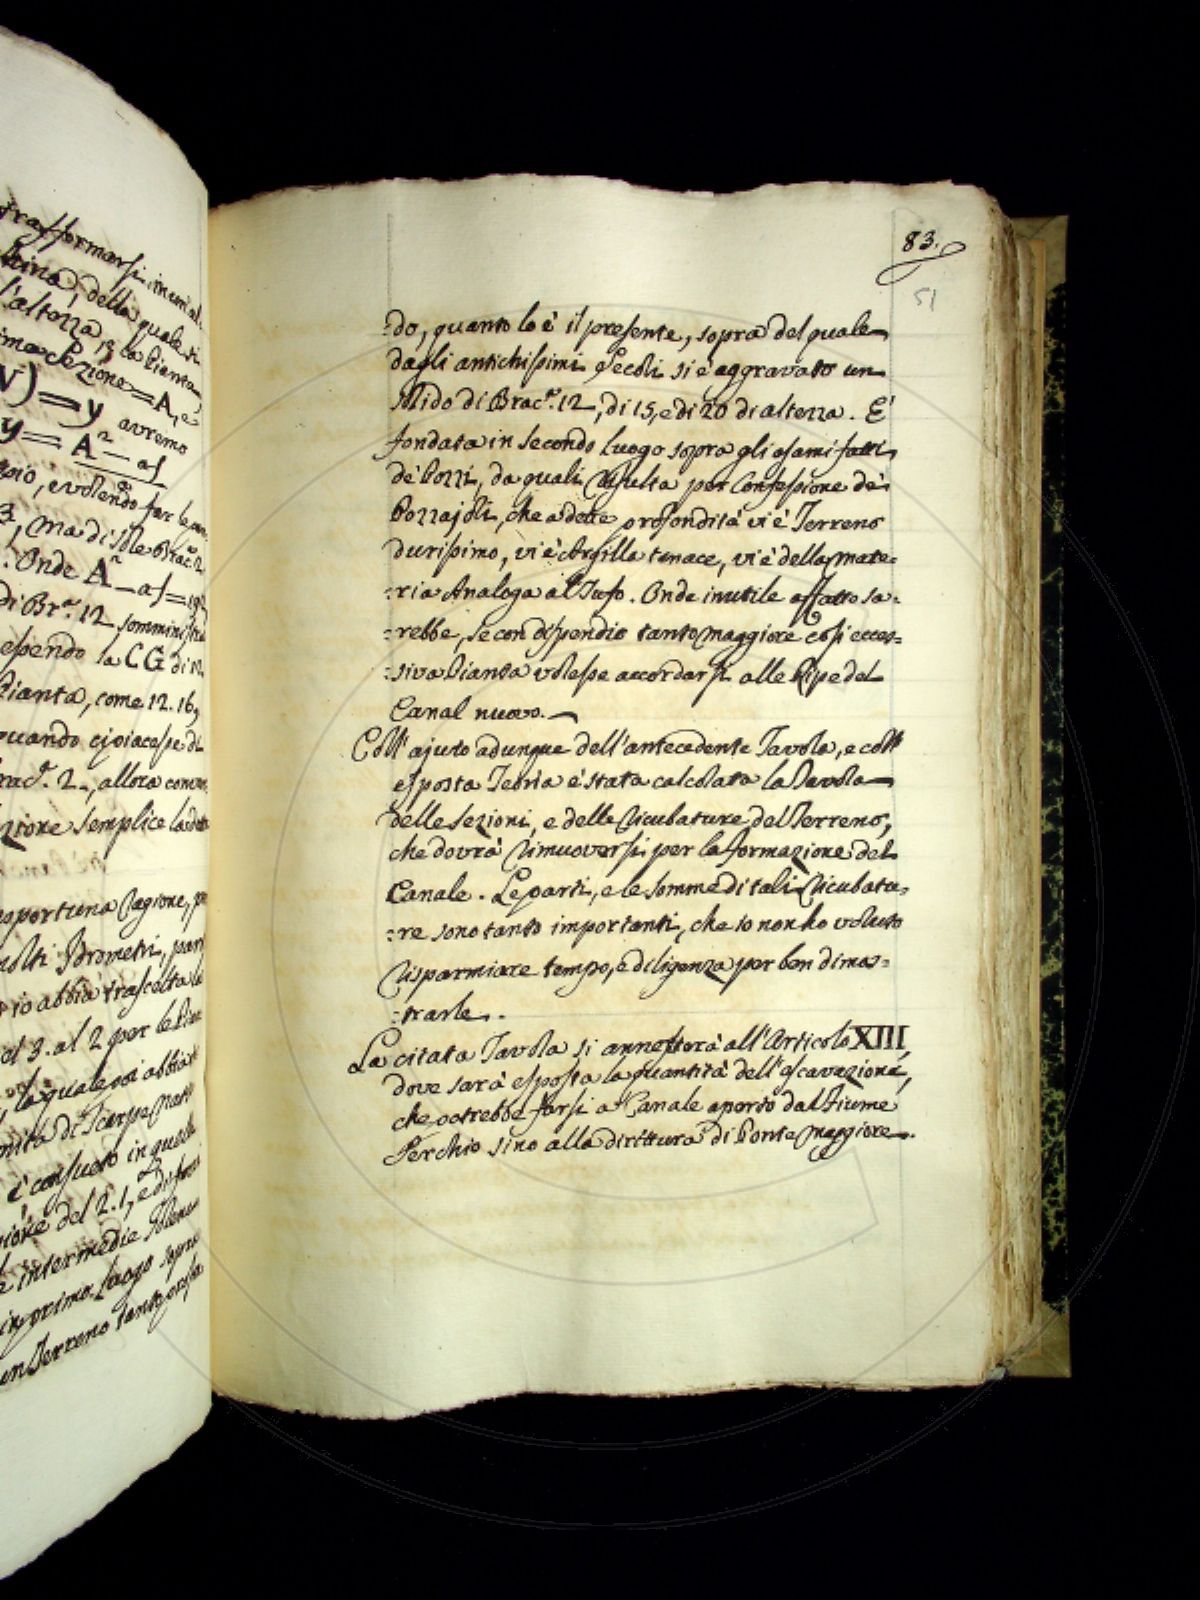 trasformarsi in un al:
della quale si
l'altezza 13 la Pianta
Sezione = A, e'
V) = y avremo
y = A² - as
, e volendo far le
3, ma di sole Brac.ª 2
. Onde A² - as = 192
di Br.ª 12 somminist
essendo la CG di 12
Pianta, come 12. 16,
quando ci piacesse di
Brac.ª 2, allora conver
zione semplice la det
opportuna Cagione, p
molti Idrometri, par
io abbia trascelta la
del 3. al 2 per le
, la quale poi abbia
mità di Scarpe
è consueto in quelle
zione del 2. 1, e di
e intermedie
in primo luogo sopra
un Terreno tanto
83.
51
:do, quanto lo è il presente, sopra del quale
dagli antichissimi Secoli si è aggravato un
Nido di Brac.ª 12, di 15, e di 20 di altezza. E'
fondata in secondo luogo sopra gli esami fatti
de' Pozzi, da quali risulta per Confessione de'
Pozzajoli, che a dette profondità vi è Terreno
durissimo, vi è Argilla tenace, vi è della mate:
:ria Analoga al Tufo. Onde inutile affatto sa:
:rebbe, se con dispendio tanto maggiore così ecces:
:siva Pianta volesse accordarsi alle Ripe del
Canal nuovo.
Coll' ajuto adunque dell'antecedente Tavola, e coll'
esposta Teoria è stata calcolata la Tavola
delle Sezioni, e delle Ricubature del Terreno,
che dovrà rimuoversi per la formazione del
Canale. Le parti, e le somme di tali Ricubatu:
:re sono tanto importanti, che io non ho voluto
risparmiare tempo, e diligenza per ben dimos:
:trarle.
La citata Tavola si annetterà all'Articolo XIII,
dove sarà esposta la quantità dell'escavazione,
che potrebbe farsi a Canale aperto dal Fiume
Serchio sino alla dirittura di Ponte maggiore.